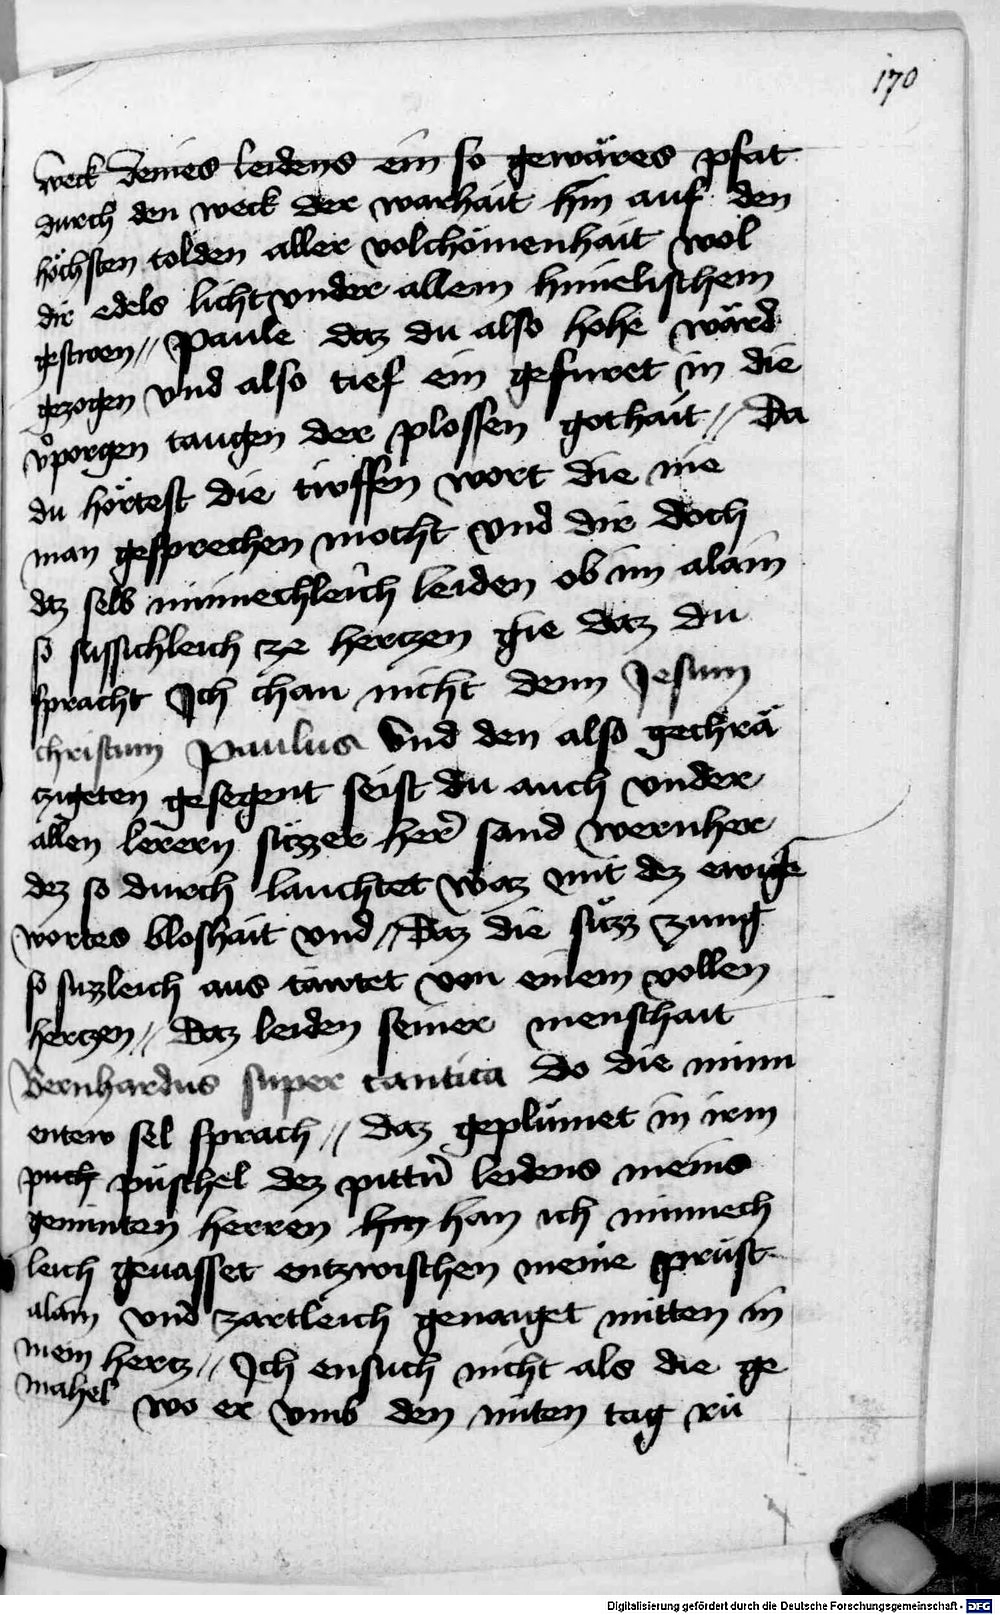 170
weck deines leidens ein so gewäres pfat
durch den weck der warhait hin auf den
höchsten tolden aller volchömenhait wol
dir edels licht vnder allem himelischem
gestiren // Paule daz du also hohe würd
gezogen vnd also tief ein gefüret in die
v̊porgen taugen der plossen gothait // Da
du hörtest die tieffen wort die nie
man gesprechen mocht vnd dir doch
daz selb minnechleich leiden ob im alain
so sussichleich ze hertzen gie daz du
spracht Ich chan nicht denn Jesum
christum Paulus Vnd den also gechrä
tzigeten gesegent seist du auch vnder
allen lerern süzzer her sand wernher
dez so durch lauchtet waz mit dez ewigē
wortes bloshait vnd // Daz die süzz zung
so suzleich aus tawtet von einem vollen
hertzen // Daz leiden seiner menschait
Bernhardus super cantica do die minn
sel sprach // daz geplümet in irm
puch püschel dez pittern leidens meins
geminten herren hin han ich minnech
leich geuasset entzwischen meine prüst
alain vnd zartleich genaiget mitten in
mein hertz // Ich ensuch nicht als die ge
mahel wo er vmb den miten tag rü
Digitalisierung gefördert durch die Deutsche Forschungsgemeinschaft - DFG